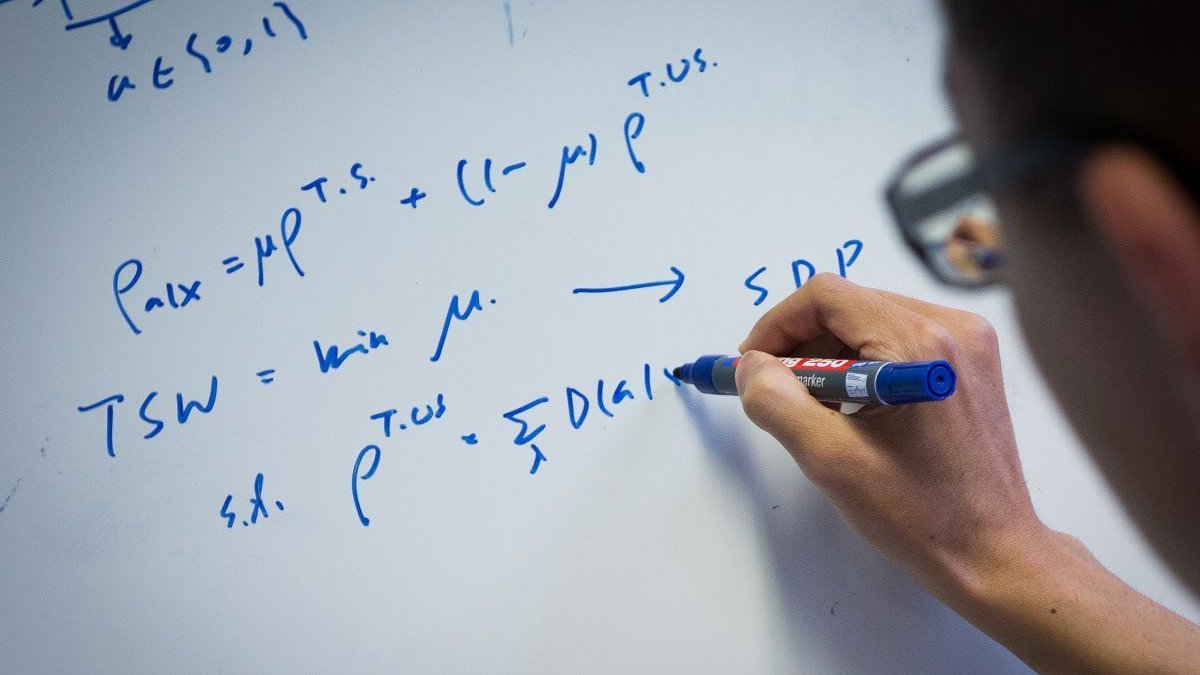 a ∈ {0,1}
ρ_{a|x} = μρ^{T.S.} + (1-μ) ρ^{T.US.}
TSW = min μ. → SDP
s.t. ρ^{T.US} = Σ_λ D(a|
250
marker